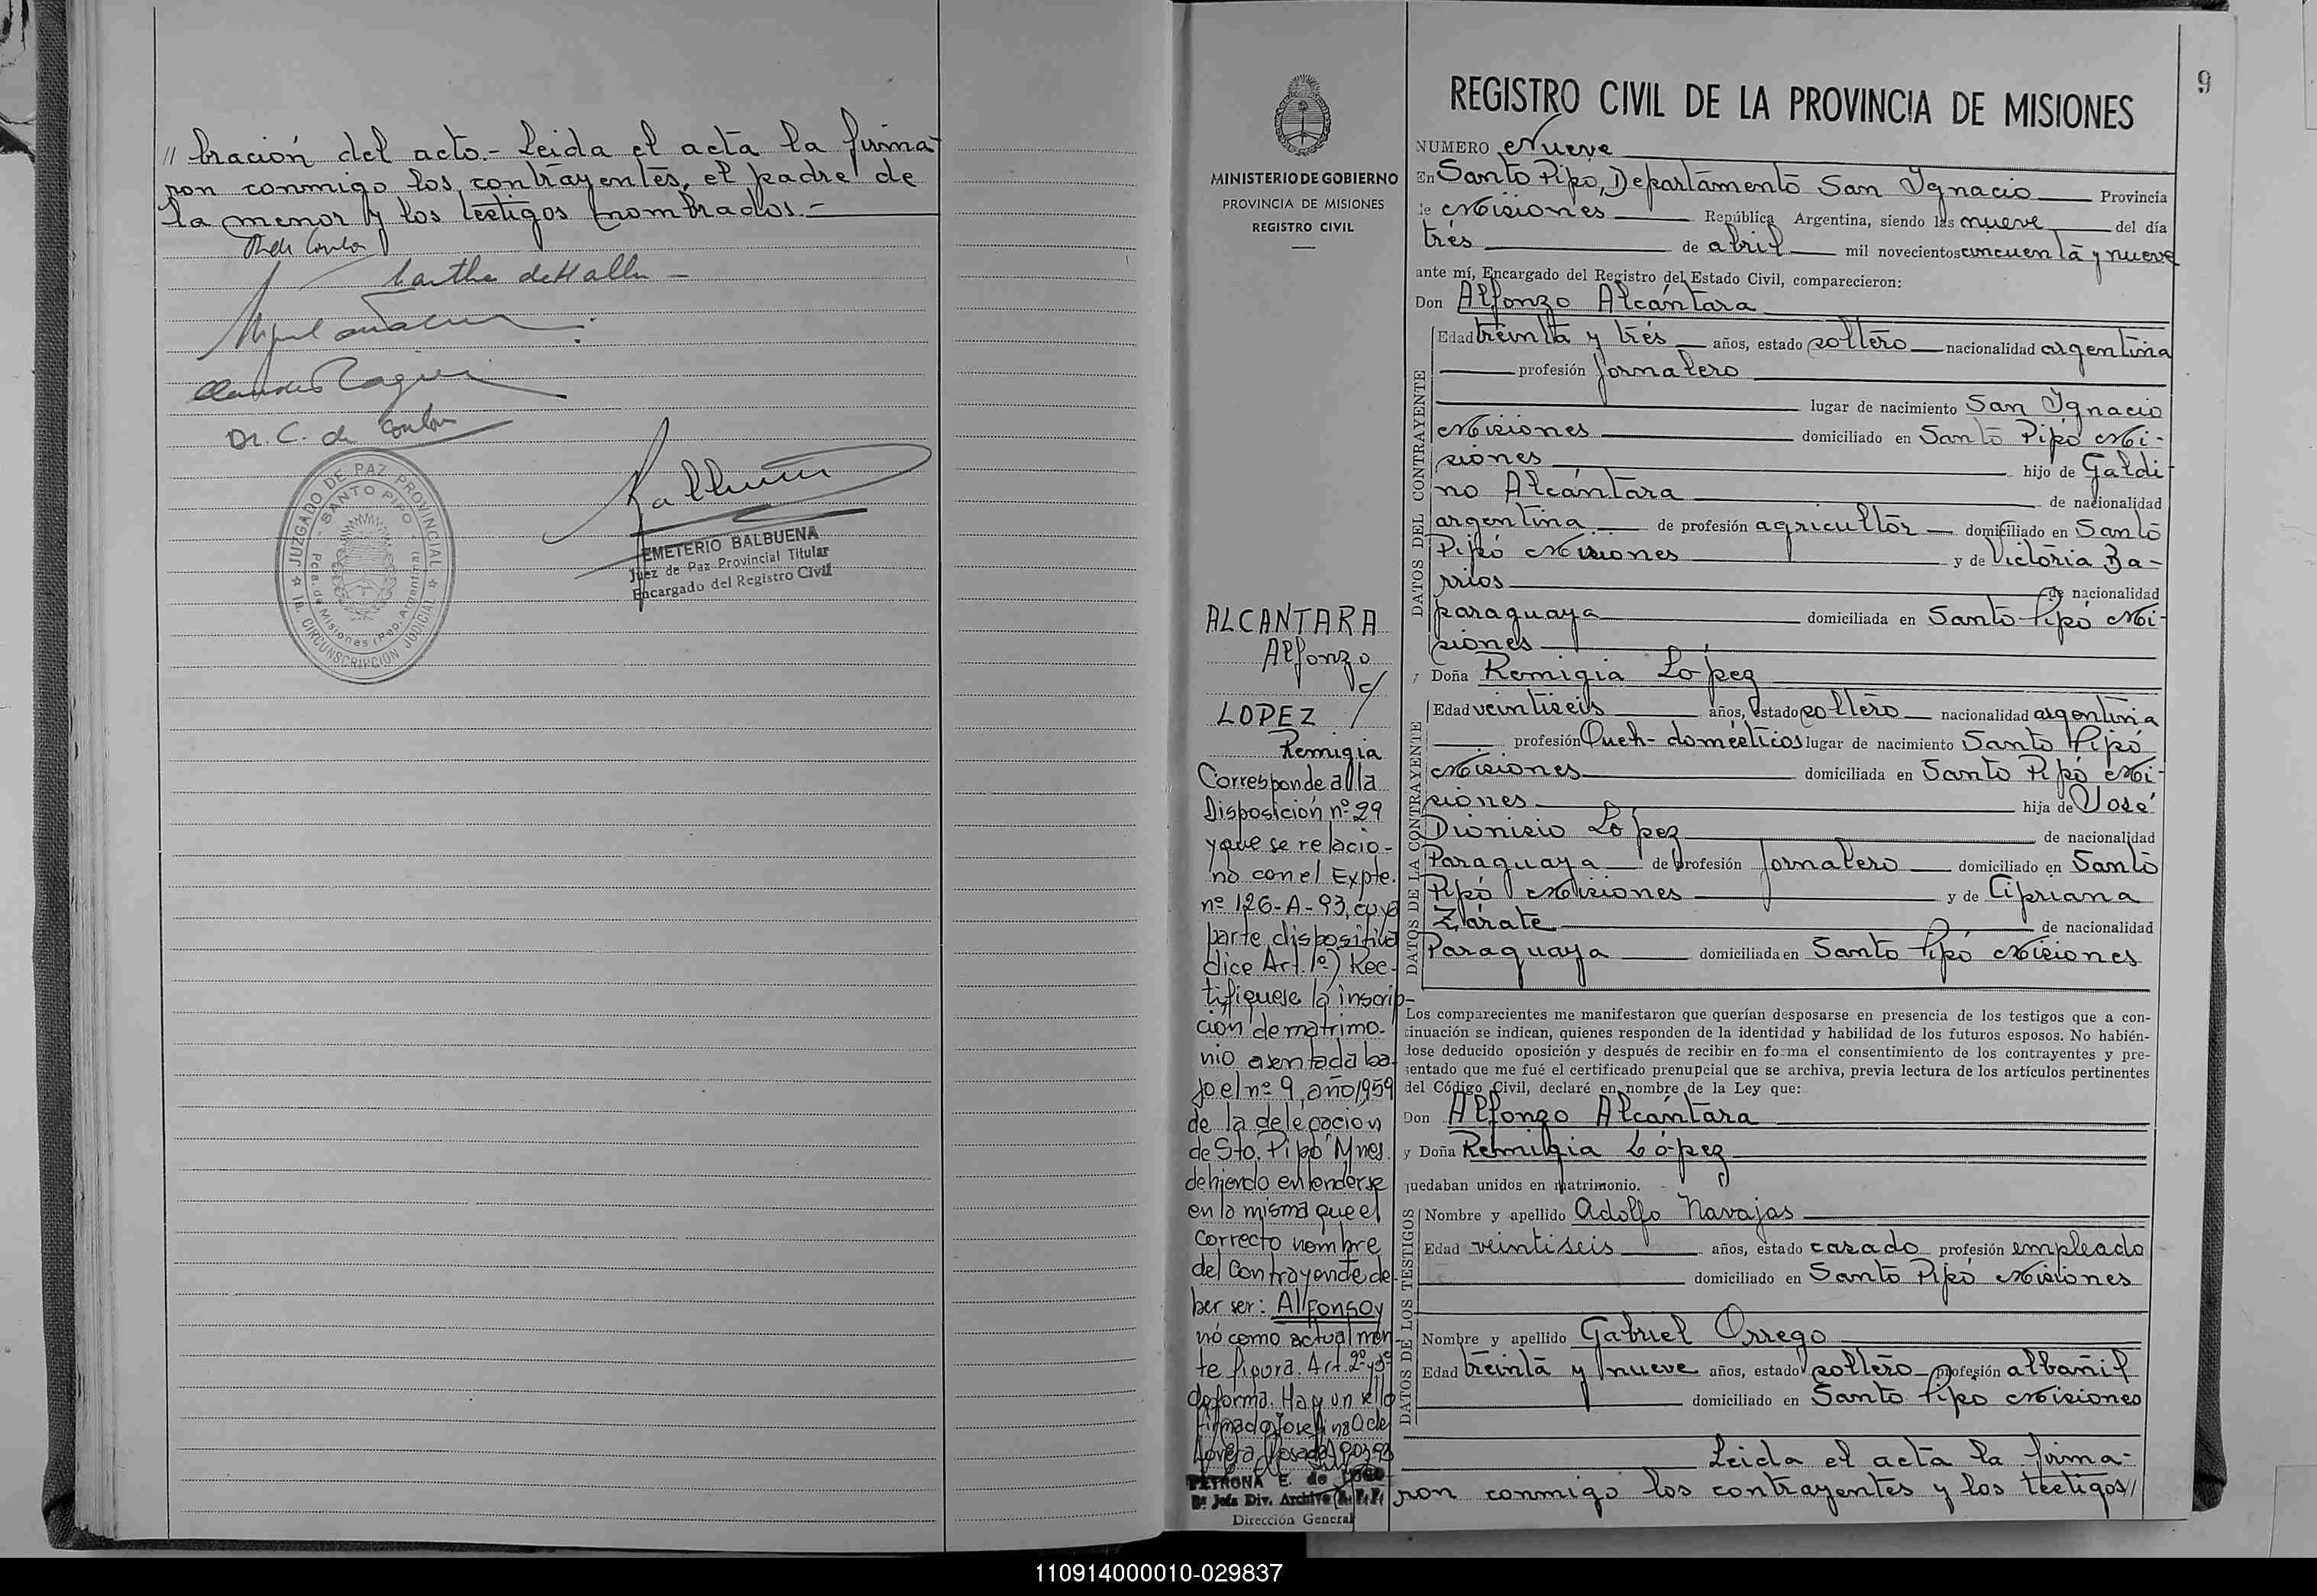 // bración del acto.- Leida el acta la firma-
ron conmigo los contrayentes, el padre de
la menor y los testigos nombrados.-
Dr. C. de Coulon
JUZGADO DE PAZ PROVINCIAL
SANTO PIPO
Pcia. de Misiones (Rep. Argentina)
1a. CIRCUNSCRIPCION JUDICIAL
EMETERIO BALBUENA
Juez de Paz Provincial Titular
Encargado del Registro Civil
9
MINISTERIO DE GOBIERNO
PROVINCIA DE MISIONES
REGISTRO CIVIL
ALCANTARA
Alfonzo
c/
LOPEZ
Remigia
Corresponde a la
Disposición nº 29
y que se relacio-
na con el Expte.
nº 126-A-93, cuya
parte dispositiva
dice Art. 1º) Rec-
tifiquese la inscrip-
ción de matrimo-
nio asentada ba-
jo el nº 9, año 1959
de la delegacion
de Sto. Pipó Mnes.
debiendo entenderse
en la misma que el
correcto nombre
del Contrayente de-
ber ser: Alfonso y
nó como actualmen-
te figura. Art. 2º y 3º
de forma. Hay un sello
firmado Josefina O. de
PETRONA E. de
Jefe Div. Archivo
Dirección General
REGISTRO CIVIL DE LA PROVINCIA DE MISIONES
NUMERO Nueve
En Santo Pipó, Departamento San Ignacio Provincia
de Misiones República Argentina, siendo las nueve del día
tres de abril mil novecientos cincuenta y nueve
ante mí, Encargado del Registro del Estado Civil, comparecieron:
Don Alfonzo Alcántara
DATOS DEL CONTRAYENTE
Edad treinta y tres años, estado soltero nacionalidad argentina
profesión Jornalero
lugar de nacimiento San Ignacio
Misiones domiciliado en Santo Pipó Mi-
siones hijo de Galdi-
no Alcántara de nacionalidad
argentina de profesión agricultor domiciliado en Santo
Pipó Misiones y de Victoria Ba-
rrios de nacionalidad
paraguaya domiciliada en Santo Pipó Mi-
siones
y Doña Remigia López
DATOS DE LA CONTRAYENTE
Edad veintiseis años, estado soltero nacionalidad argentina
profesión Queh-domésticos lugar de nacimiento Santo Pipó
Misiones domiciliada en Santo Pipó Mi-
siones hija de José
Dionisio López de nacionalidad
Paraguaya de profesión Jornalero domiciliado en Santo
Pipó Misiones y de Cipriana
Zárate de nacionalidad
Paraguaya domiciliada en Santo Pipó Misiones
Los comparecientes me manifestaron que querían desposarse en presencia de los testigos que a con-
tinuación se indican, quienes responden de la identidad y habilidad de los futuros esposos. No habién-
dose deducido oposición y después de recibir en forma el consentimiento de los contrayentes y pre-
sentado que me fué el certificado prenupcial que se archiva, previa lectura de los artículos pertinentes
del Código Civil, declaré en nombre de la Ley que:
Don Alfonzo Alcántara
y Doña Remigia López
quedaban unidos en matrimonio.
DATOS DE LOS TESTIGOS
Nombre y apellido Adolfo Navajas
Edad veintiseis años, estado casado profesión empleado
domiciliado en Santo Pipó Misiones
DATOS DE LOS TESTIGOS
Nombre y apellido Gabriel Orrego
Edad treinta y nueve años, estado soltero profesión albañil
domiciliado en Santo Pipo Misiones
Leida el acta la firma-
ron conmigo los contrayentes y los testigos//
110914000010-029837